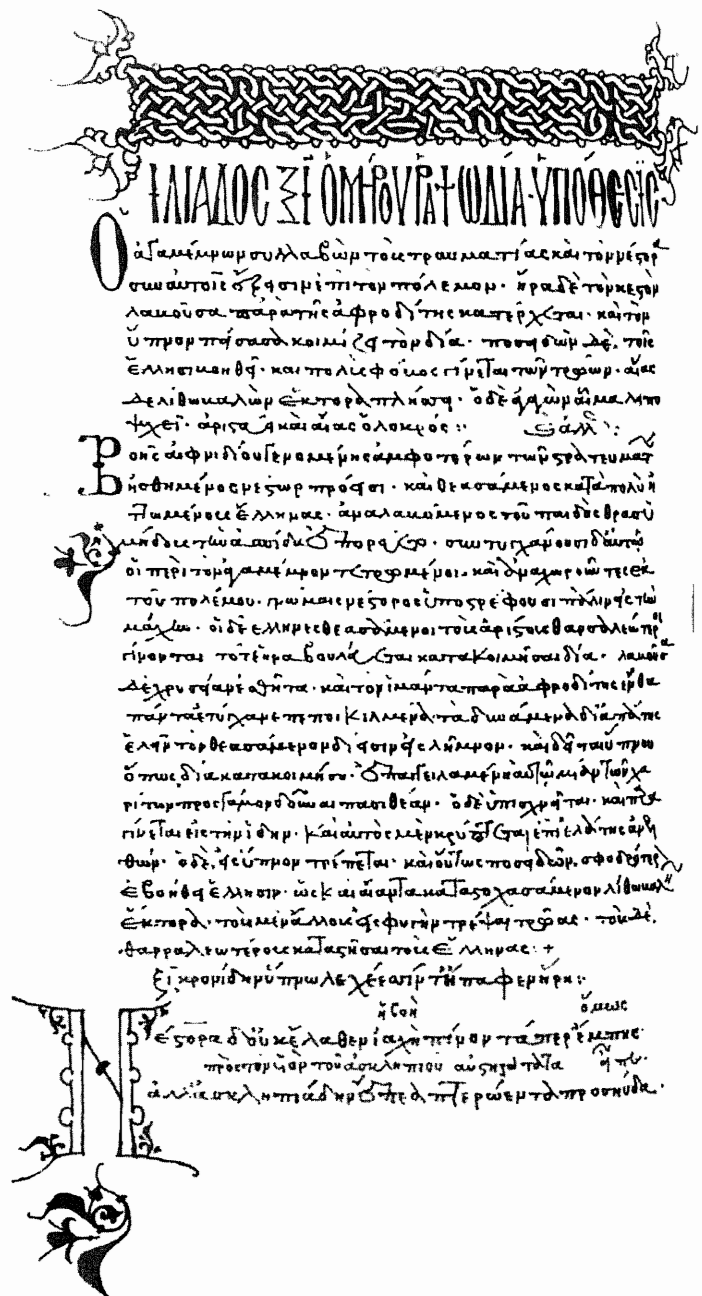 ἸΛΙΑΔΟC Ξ̄Ι ὉΜΗΡΟΥ ΡΑΨΩΔΊΑ · ὙΠΌΘΕCΙC
Ὁ ἀγαμέμνων συλλαβὼν τοὺς τραυματίας καὶ τὸν νέστορα
σὺν αὐτοῖς ἐπὶ τὸν πόλεμον · ἥρα δὲ τὸν κεστὸν
λαβοῦσα παρὰ τῆς ἀφροδίτης κατέρχεται · καὶ τὸν
ὕπνον πείσασα κοιμίζει τὸν δία · ποσειδῶν δὲ τοῖς
ἕλλησι βοηθεῖ · καὶ πολὺς φόνος γίνεται τῶν τρώων · αἴας
δὲ λίθω βαλὼν ἕκτορα πλήσσει · ὁ δὲ αἷμα
ψύχει · ἀριστεύει καὶ αἴας ὁ λοκρός :
Βοῆς αἰφνιδίου γενομένης ἀμφοτέρων τῶν στρατευμάτων
αἰσθημένος νέστωρ πρόσεισι · καὶ θεασάμενος κατὰ πολὺ
ἡττωμένους ἕλληνας · ἀναλαβόμενος τοῦ παιδὸς θρασυ
μήδους τὴν ἀσπίδα πορεύεται · συντυγχάνουσι δ᾽ αὐτῶ
οἱ περὶ τὸν ἀγαμέμνονα τετρωμένοι · καὶ ἀναχωροῦντες ἐκ
τοῦ πολέμου · γνώμαις νέστορος ὑποστρέφουσι πάλιν εἰς τὴν
μάχην · οἱ δὲ ἕλληνες θεασάμενοι τοὺς ἀρίστους θαρσαλεώτεροι
γίνονται τότε ἥρα βουλεύεται κατακοιμῆσαι δία · λαβοῦσα
δὲ χρυσῆν ἐσθῆτα · καὶ τὸν ἱμάντα παρὰ ἀφροδίτης ἔνθα
πάντα ἐτύγχανε πεποικιλμένα τὰ δυνάμενα δι᾽ ἀπάτης
ἑλεῖν τὸν θεασάμενον δίεισιν εἰς λῆμνον · καὶ δεῖται ὕπνου
ὅπως δία κατακοιμήση · ἐπαγγειλαμένη αὐτῶ μίαν τῶν χα
ρίτων πρὸς γάμον δῶναι πασιθέαν · ὁ δὲ ὑπισχνεῖται · καὶ
γίνεται εἰς τὴν ἴδην · καὶ αὐτὸς μὲν κρύπτεται ἐπὶ ἐλάτης
ὁ δὲ εἰς ὕπνον τρέπεται · καὶ οὕτως ποσειδῶν σφοδρότερον
ἐβοήθει ἕλλησιν · ὡς καὶ αἴαντα καταστοχασάμενον λίθω βαλεῖν
ἕκτορα · τοὺς μὲν ἄλλους εἰς φυγὴν τρέψαι τρῶας · τοὺς δὲ
θαρραλεωτέρους καταστῆσαι τοὺς ἕλληνας : +
Ξῖ κρονίδην ὕπνω λεχέεσσιν ἥρη :
ὅμως
Νέστορα δ᾽ οὐκ ἔλαθεν ἰαχὴ πίνοντά περ ἔμπης
πρὸς τὸν υἱὸν τοῦ ἀσκληπιοῦ
ἀλλ᾽ ἀσκληπιάδην ἔπεα πτερόεντα προσηύδα ·